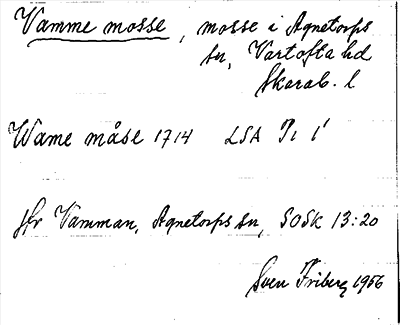 Vamme mosse, mosse i Agnetorps
sn, Vartofta hd
Skarab. l
Wame måse 1714 LSA P1 1
Jfr Vamman, Agnetorps sn, SOSk 13:20
Sven Friberg 1956